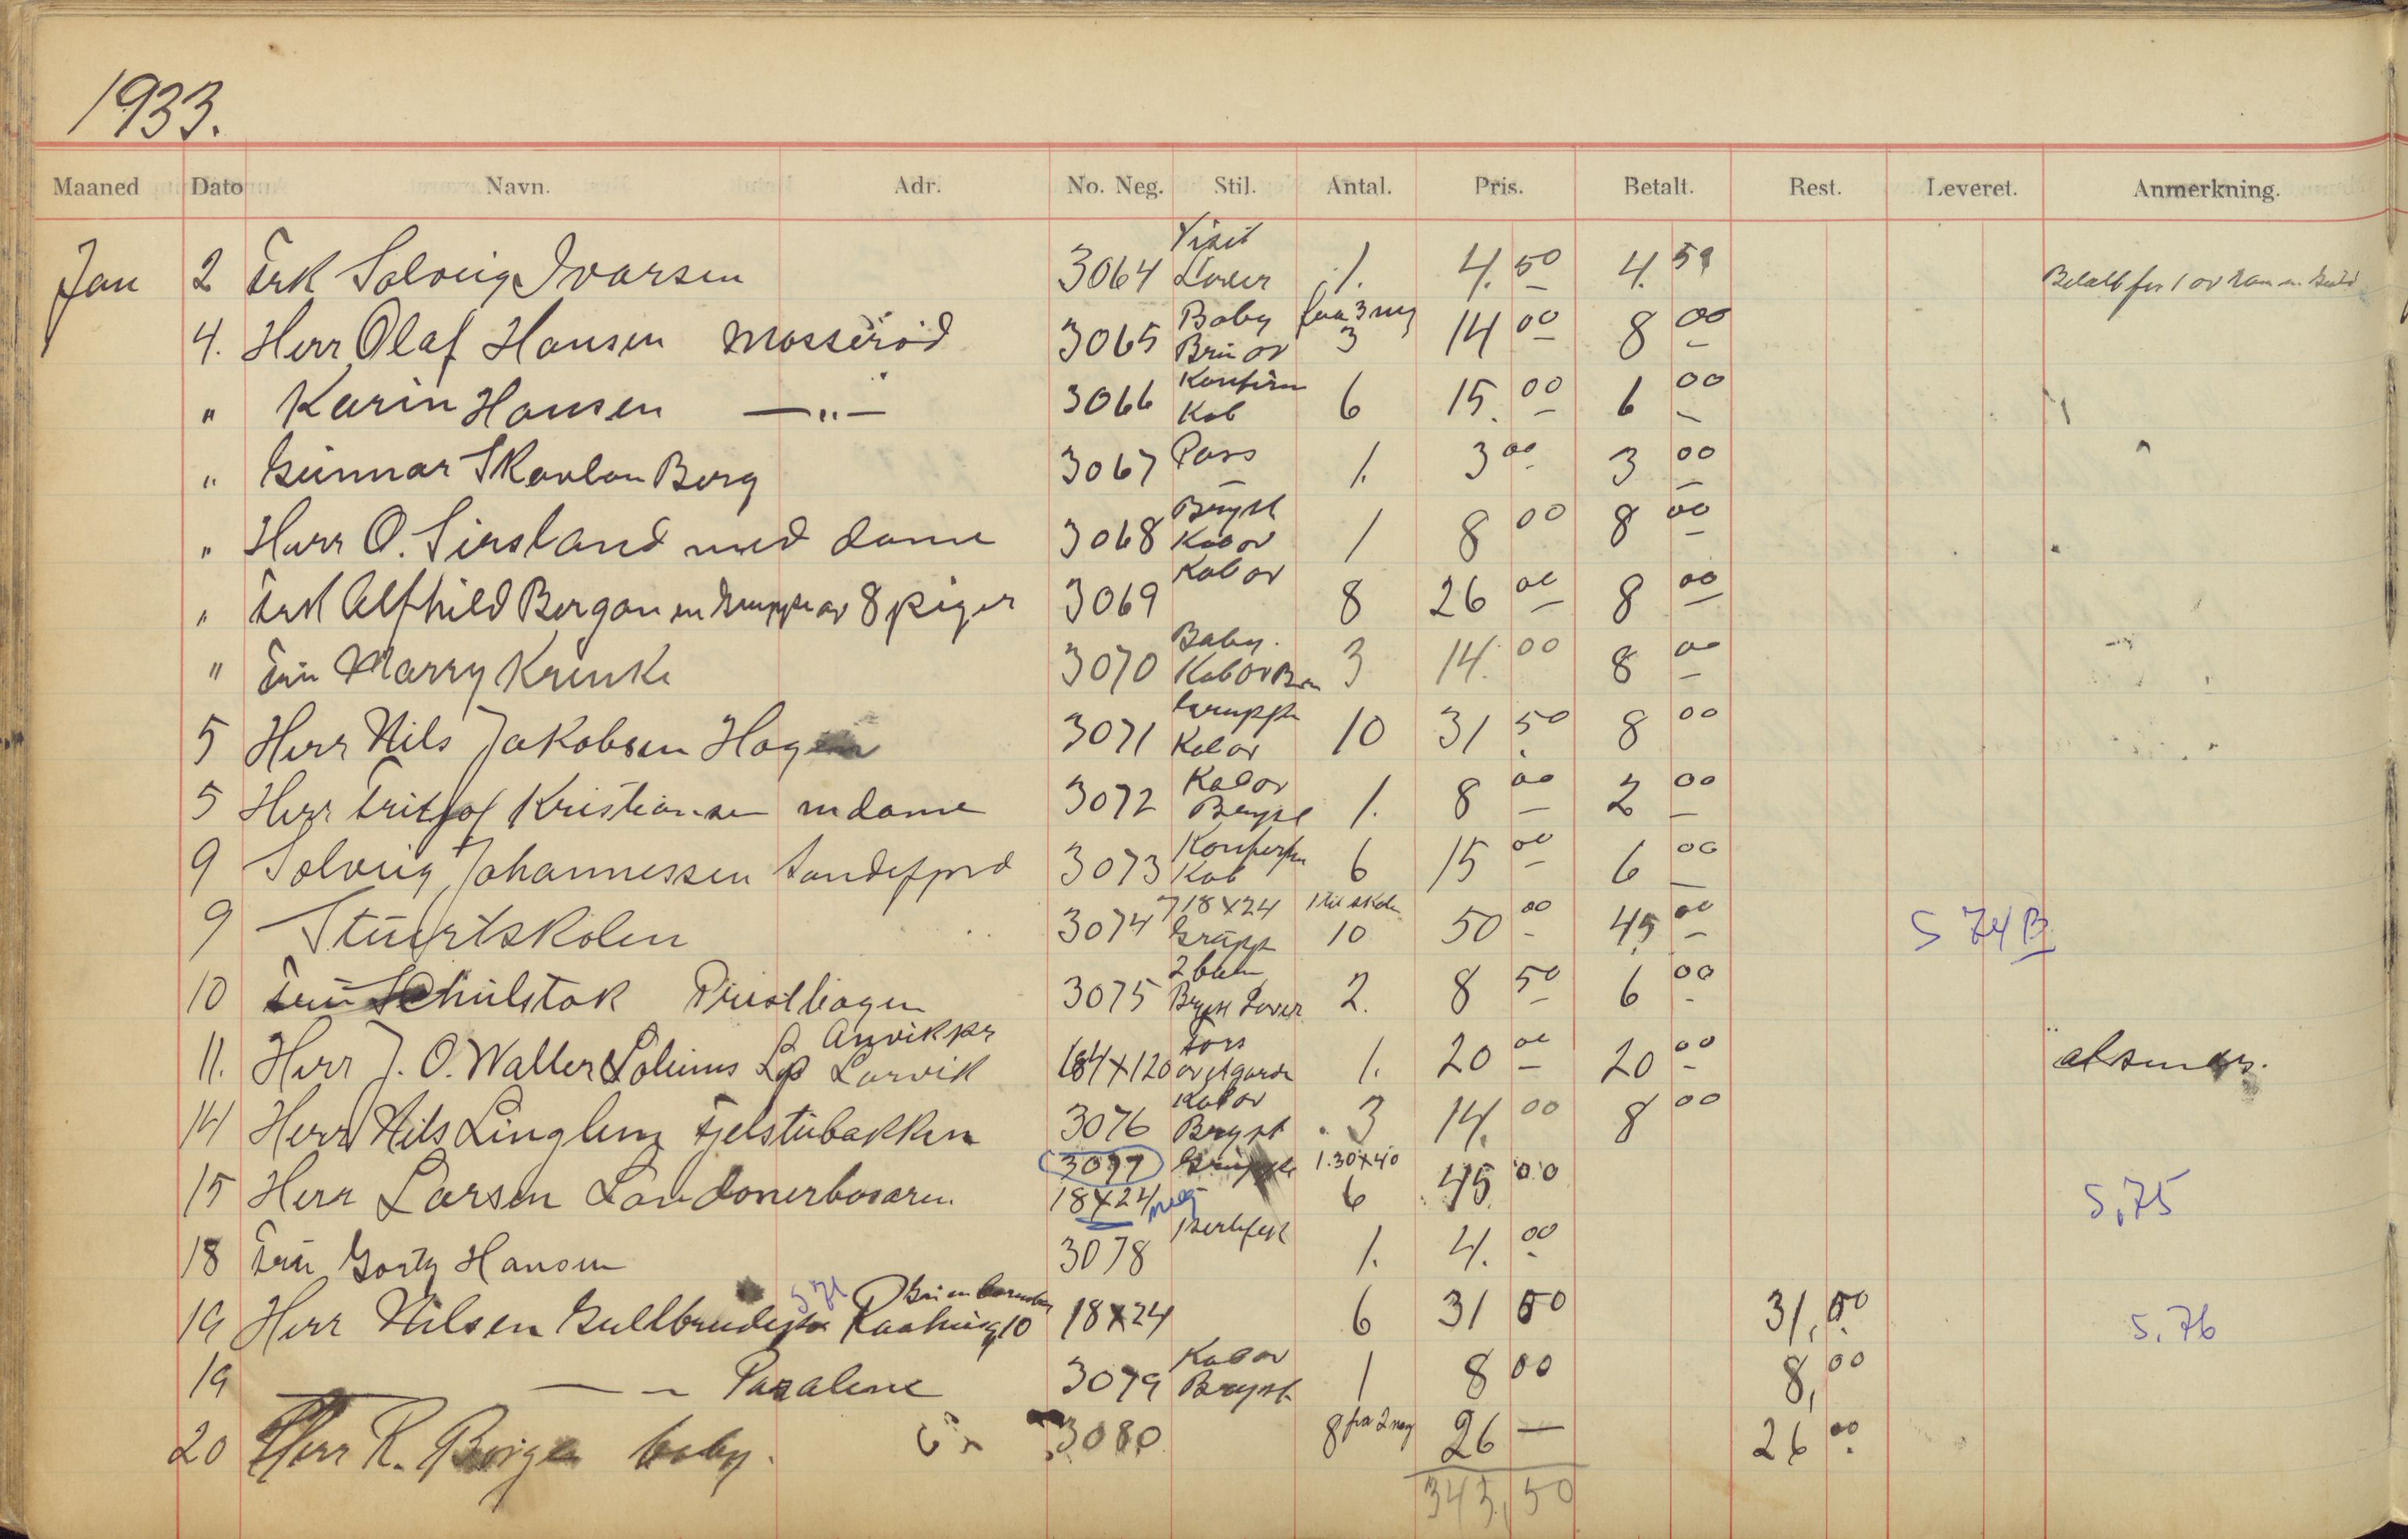 1933.
Maaned Dato Navn. Adr. No. Neg. Stil. Antal. Pris. Betalt. Rest. Leveret. Anmerkning.
Visit
Jan 2 Frk Solveig Ivarsen 3064 1. 4. 50 4. 50 Betalt for 1 av
Baby fra 3 neg
4. Herr Olaf Hansen Mosserød 3065 Brün ov 3 14 00 8 00
Konfirm
" Karin Hansen —"— 3066 Kab 6 15. 00 6 00
" Gunnar Skavlan Berg 3067 Pass 1. 3 00 3 00
Bryst
" Herr O. Sirsland med dame 3068 Kab ov 1 8 00 8 00
Kab ov
" Frk Alfhild Bergan en Gruppe av 8 piger 3069 8 26 00 8 00
Baby.
" Frü Marry Krinke 3070 Kab ov Brün 3 14. 00 8 00
Gruppe
5 Herr Nils Jakobsen Hagen 3071 Kab ov 10 31 50 8 00
Kab ov
5 Herr Fritjof Kristiansen m dame 3072 Bryst 1. 8 00 2 00
Konfirm
9 Solveig Johannessen Sandefjord 3073 Kab 6 15 00 6 00
718x24 1 til skolen
9 Stüertskolen 3074 Grüppe 10 50 00 45 00 S 74 B
2 bilder
10 Frü Schülstok Pristhagen 3075 Bryst 2. 8 50 6 00
Anvik pr
11. Herr J. O. Waller Larvik 184x120 1. 20 00 20 00
Kab ov
14 Herr Nils Lingling Fjelstübakken 3076 Bryst 3 14. 00 8 00
3077 Grüppe 1.30x40
15 Herr Larsen Londonerbasaren 18x24 neg 6 45. 00 5,75
18 Frü Hansen 3078 1. 4. 00
19 Herr Nilsen Raahüsg 10 18x24 6 31 50 31,50 5.76
Kab ov
19 — — Paralene 3079 Bryst 1 8 00 8,00
20 Herr R. baby. 3080 8 fra 2 neg 26 — 26 00
343,50